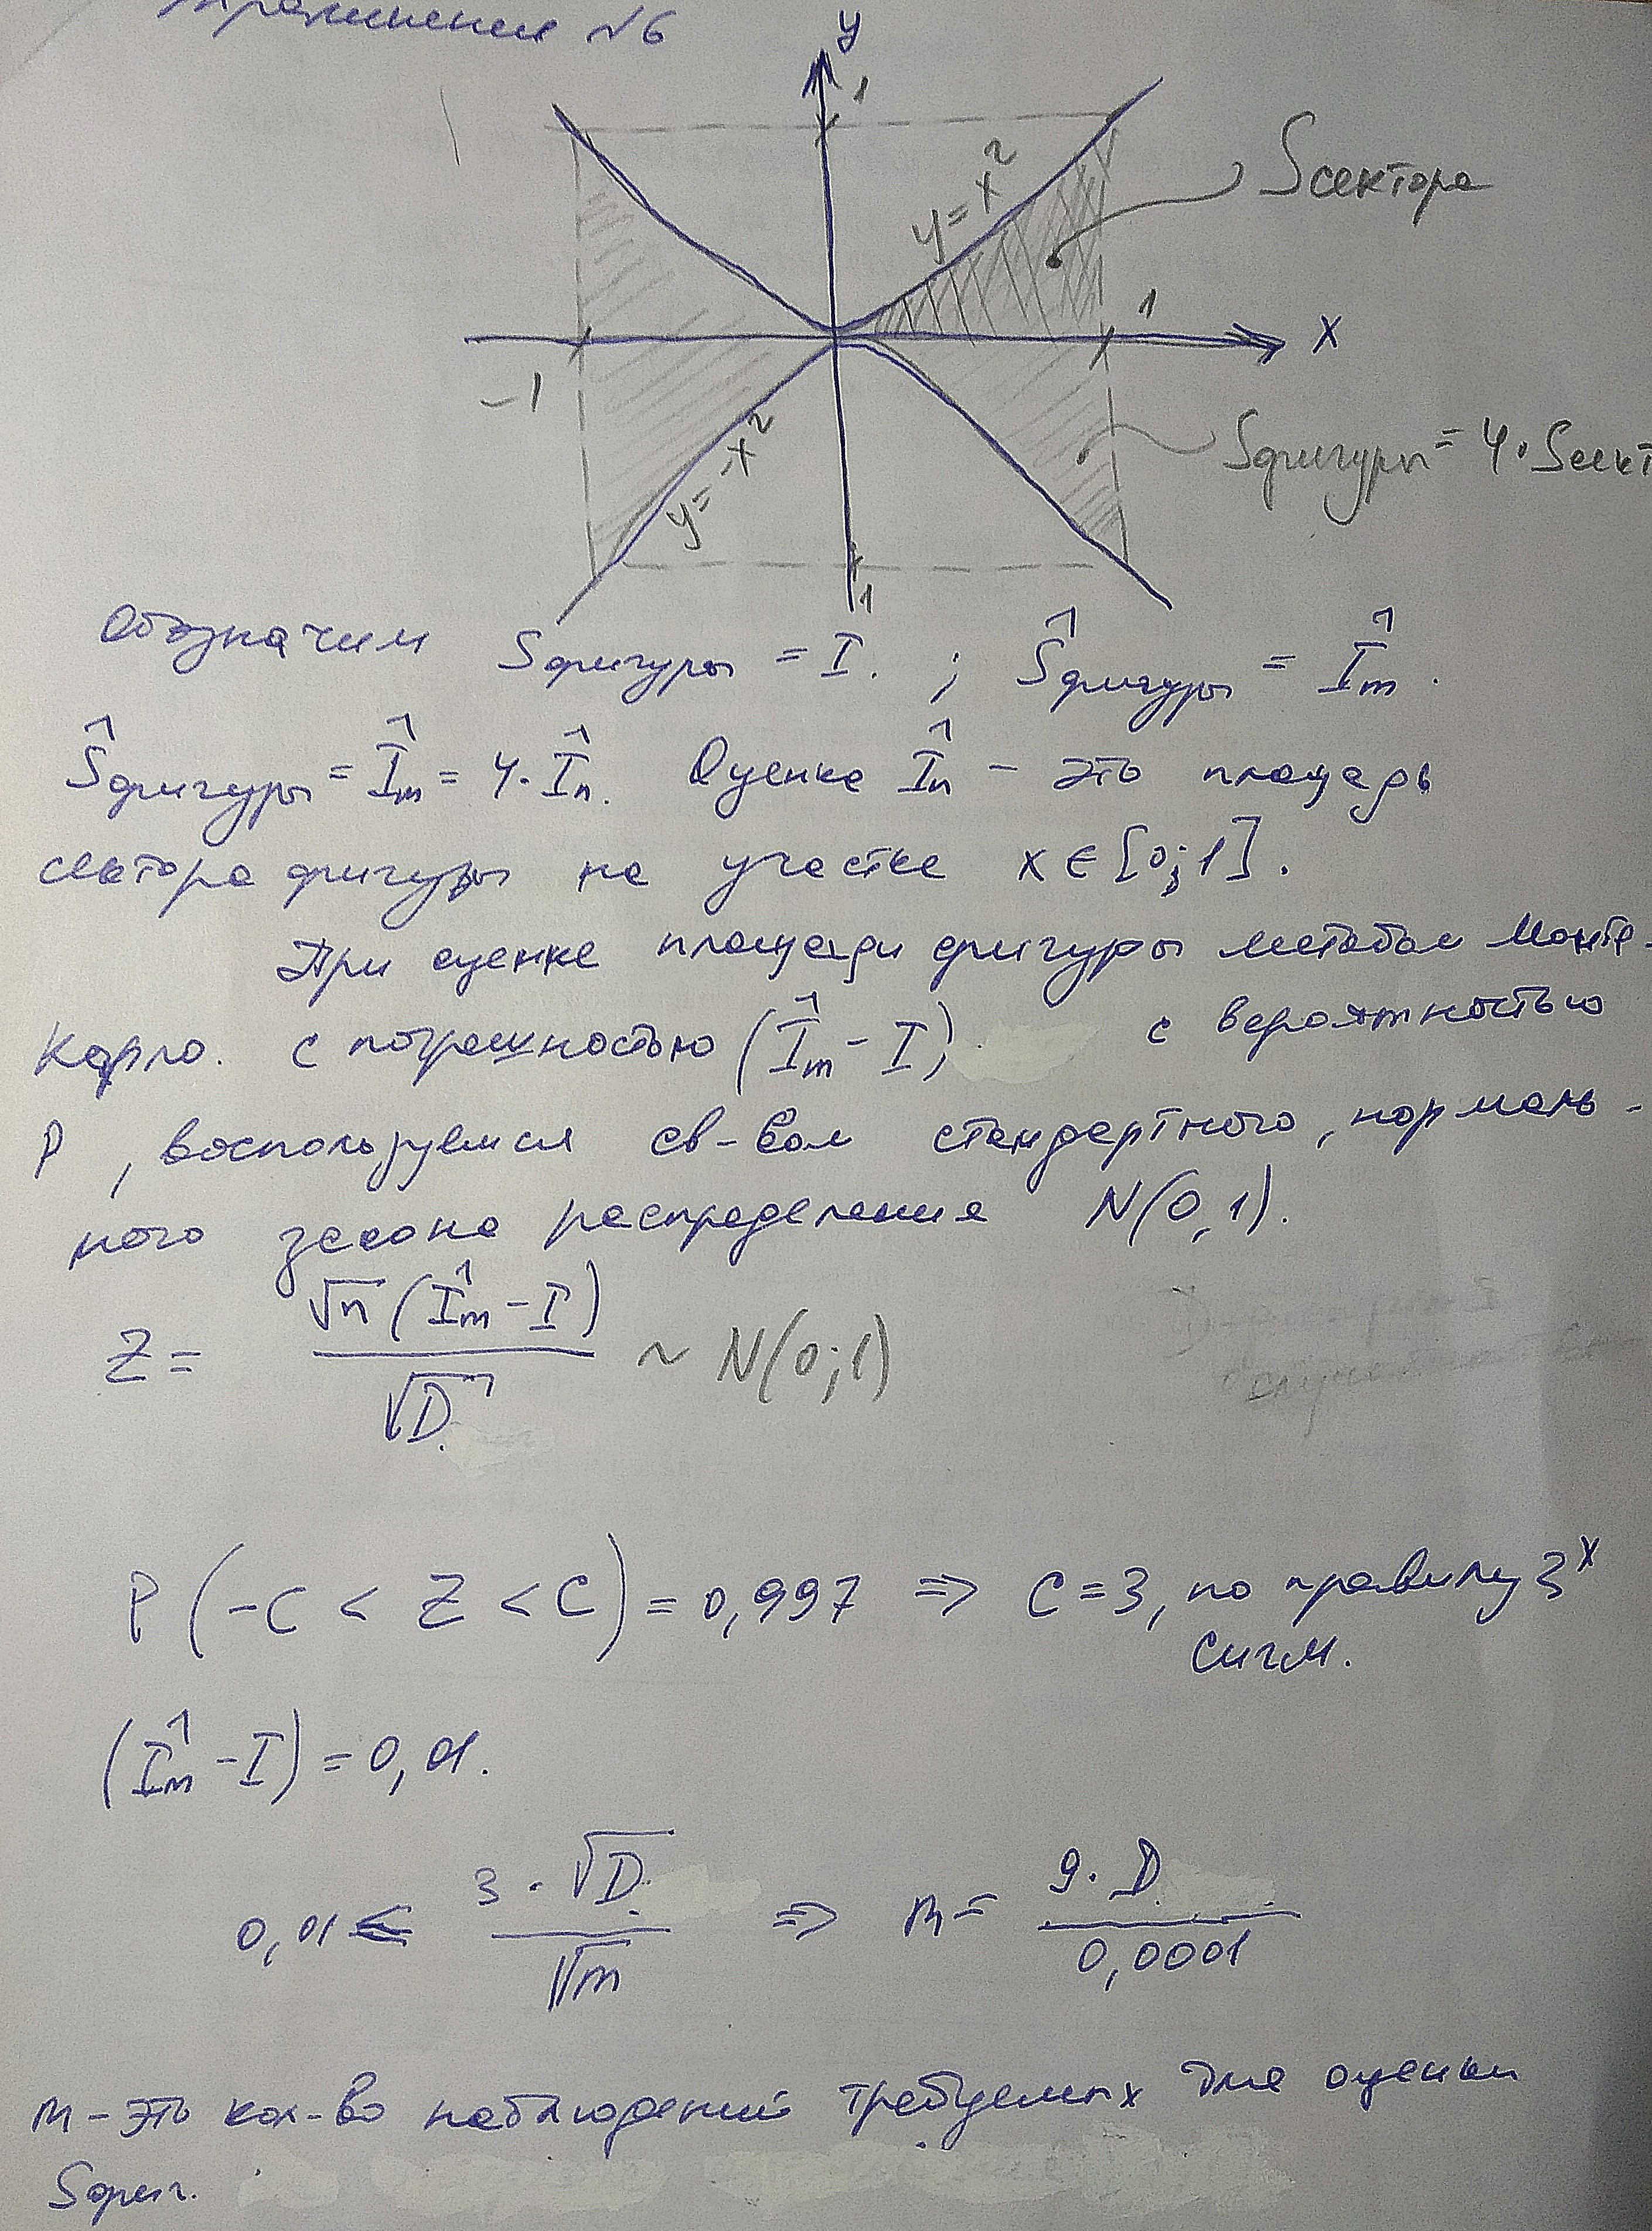 Упражнение №6
y
1
y = x²
Sсектора
1
x
-1
y = -x²
Sфигуры = 4·Sсект
1
Обозначим Sфигуры = I. ; Ŝфигуры = Îm.
Ŝфигуры = Îm = 4·În. Оценка În – это площадь
сектора фигуры на участке x ∈ [0;1].
При оценке площади фигуры методом Монте-
Карло. с погрешностью (Îm – I) с вероятностью
P, воспользуемся св-вом стандартного, нормаль-
ного закона распределения N(0,1).
Z = √n (Îm – I) / √D. ~ N(0;1)
P(-C < Z < C) = 0,997 => C = 3, по правилу 3х
сигм.
(Îm – I) = 0,01.
0,01 ≤ 3·√D. / √m => m = 9·D / 0,0001
m – это кол-во наблюдений требуемых для оценки
Sфиг.